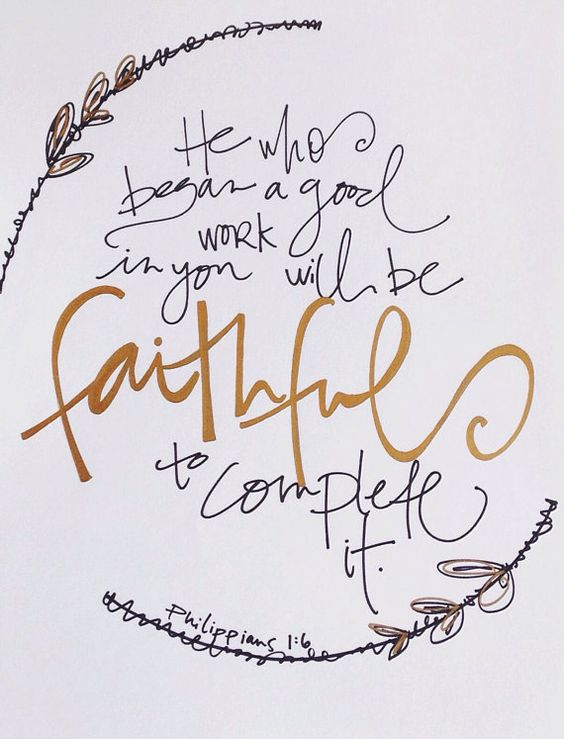 He who
began a good
work
in you will be
faithful
to complete
it.
Philippians 1:6